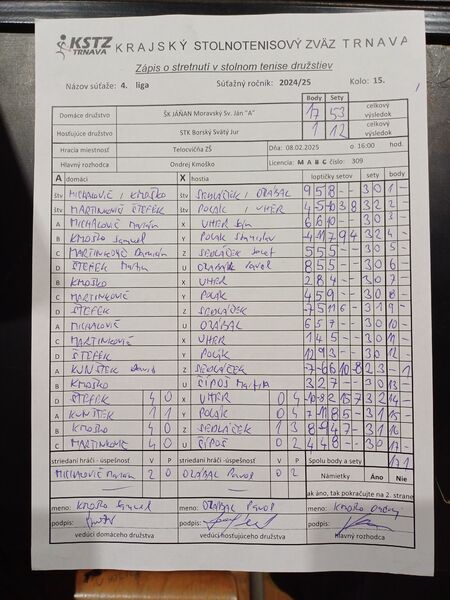 KSTZ TRNAVA KRAJSKÝ STOLNOTENISOVÝ ZVÄZ TRNAVA
Zápis o stretnutí v stolnom tenise družstiev
Názov súťaže: 4. liga Súťažný ročník: 2024/25 Kolo: 15.
Body Sety
Domáce družstvo ŠK JÁŇAN Moravský Sv. Ján "A" 17 53 celkový výsledok
Hosťujúce družstvo STK Borský Svätý Jur 1 12 celkový výsledok
Hracia miestnosť Telocvičňa ZŠ Dňa: 08.02.2025 o 16:00 hod.
Hlavný rozhodca Ondrej Kmoško Licencia: M A B C číslo: 309
A domáci X hostia loptičky setov sety body
štv MICHALOVIČ / KMOŠKO štv SEDLÁČEK / DRÁBAL 9 5 8 - - 3 0 1 -
štv MARTINKOVIČ ŠTEFEK štv POLÁK / UHER
A MICHALOVIČ Marián X UHER 6 6 10 - - 3 0 3 -
B KMOŠKO Samuel Y POLÁK Stanislav 3 2 4 -
C MARTINKOVIČ Z SEDLÁČEK Jozef 5 5 5 - - 3 0 5 -
D ŠTEFEK Martin U DRÁBAL Pavol 8 5 5 - - 3 0 6 -
B KMOŠKO X UHER 2 8 4 - - 3 0 7 -
C MARTINKOVIČ Y POLÁK 4 5 9 - - 3 0 8 -
D ŠTEFEK Z SEDLÁČEK 3 1 9 -
A MICHALOVIČ U DRÁBAL 6 5 7 - - 3 0 10 -
C MARTINKOVIČ X UHER 1 4 5 - - 3 0 11 -
D ŠTEFEK Y POLÁK 12 9 3 - - 3 0 12 -
A KUNŠTEK David Z SEDLÁČEK -7 -6 6 10 -8 2 3 - 1
B KMOŠKO U ČIPOŠ Martin 3 2 7 - - 3 0 13 -
D ŠTEFEK 4 0 X UHER 0 4 3 2 14 -
A KUNŠTEK 1 1 Y POLÁK 0 4 3 1 15 -
B KMOŠKO 4 0 Z SEDLÁČEK 1 3 3 1 16 -
C MARTINKOVIČ 4 0 U ČIPOŠ 0 2 4 4 8 - - 3 0 17 -
striedaní hráči - úspešnosť V P striedaní hráči - úspešnosť V P Spolu body a sety 17 1
MICHALOVIČ Marián 2 0 DRÁBAL Pavol 0 2 Námietky Áno Nie
ak áno, tak pokračujte na 2. strane
meno: KMOŠKO Samuel meno: DRÁBAL Pavol meno: KMOŠKO Ondrej
podpis: podpis: podpis:
vedúci domáceho družstva vedúci hosťujúceho družstva hlavný rozhodca